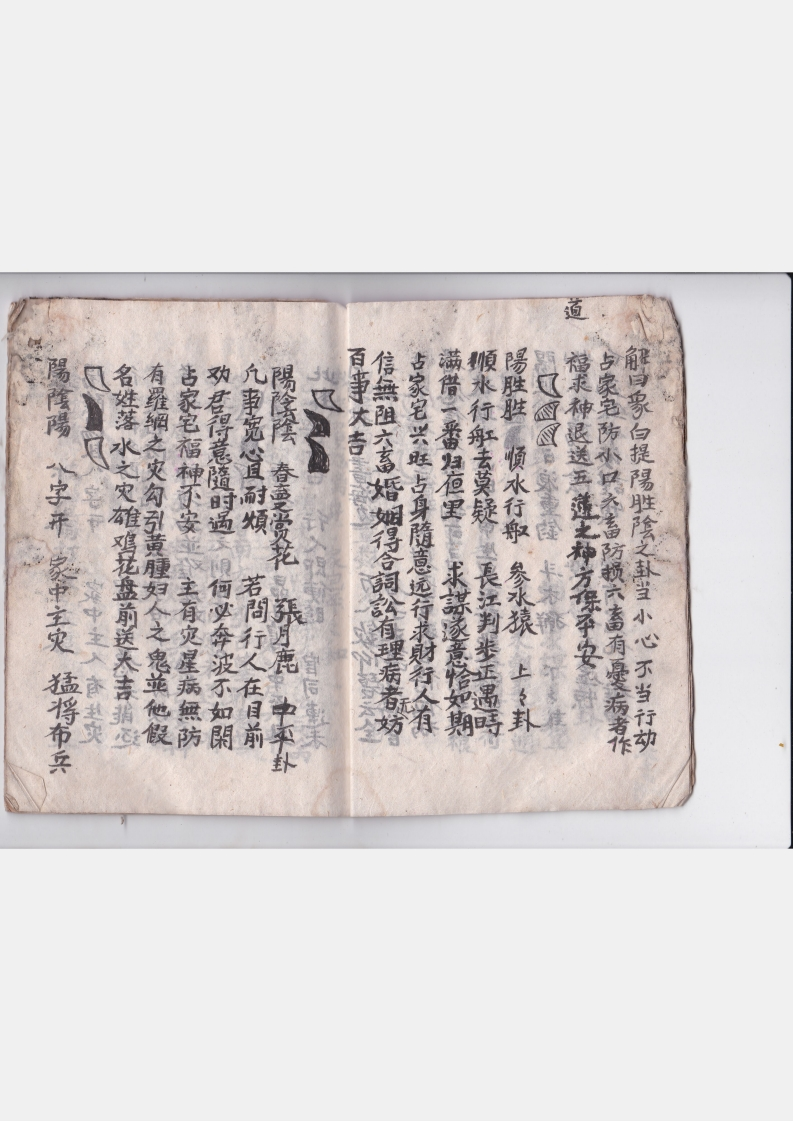 解曰象白提陽胜陰之卦当小心不当行动
占家宅防小口六畜防损六畜有憂病者作
福求神退送五道之神方保平安
道
陽胜胜 順水行船 參水猿 上々卦
順水行舡去莫疑 長江判步正遇時
满借一番归但里 求謀遂意恰如期
占家宅兴旺占身隨意远行求財行人有
信無阻六畜婚姻得合詞訟有理病者无妨
百事大吉
陽陰陰 春臺赏花 張月鹿 中平卦
凡事宽心宜耐煩 若問行人在目前
劝君得意隨時過 何必奔波不如閑
占家宅福神不安 主有灾星病無防
有羅網之灾勾引黄腫妇人之鬼並他假
名姓落水之灾雄鸡花盘前送大吉
陽陰陽 八字开 家中主灾 猛将布兵